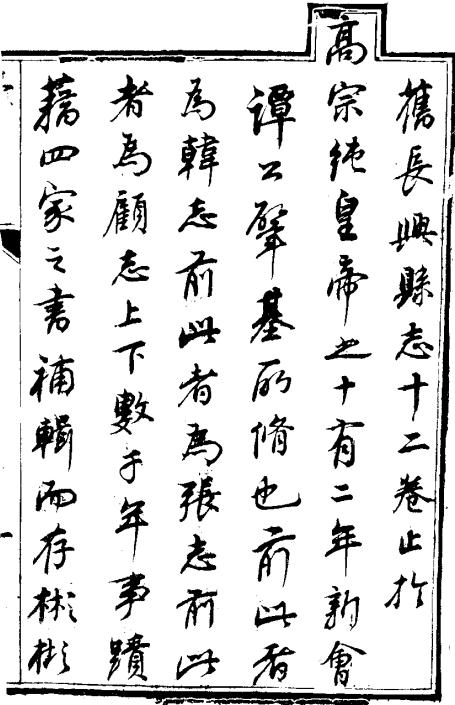 舊長興縣志十二卷止於
高宗純皇帝之十有二年新會
譚公肇基所脩也前此者
為韓志前此者為張志前此
者為顧志上下數千年事蹟
藉四家之書補輯而存彬彬